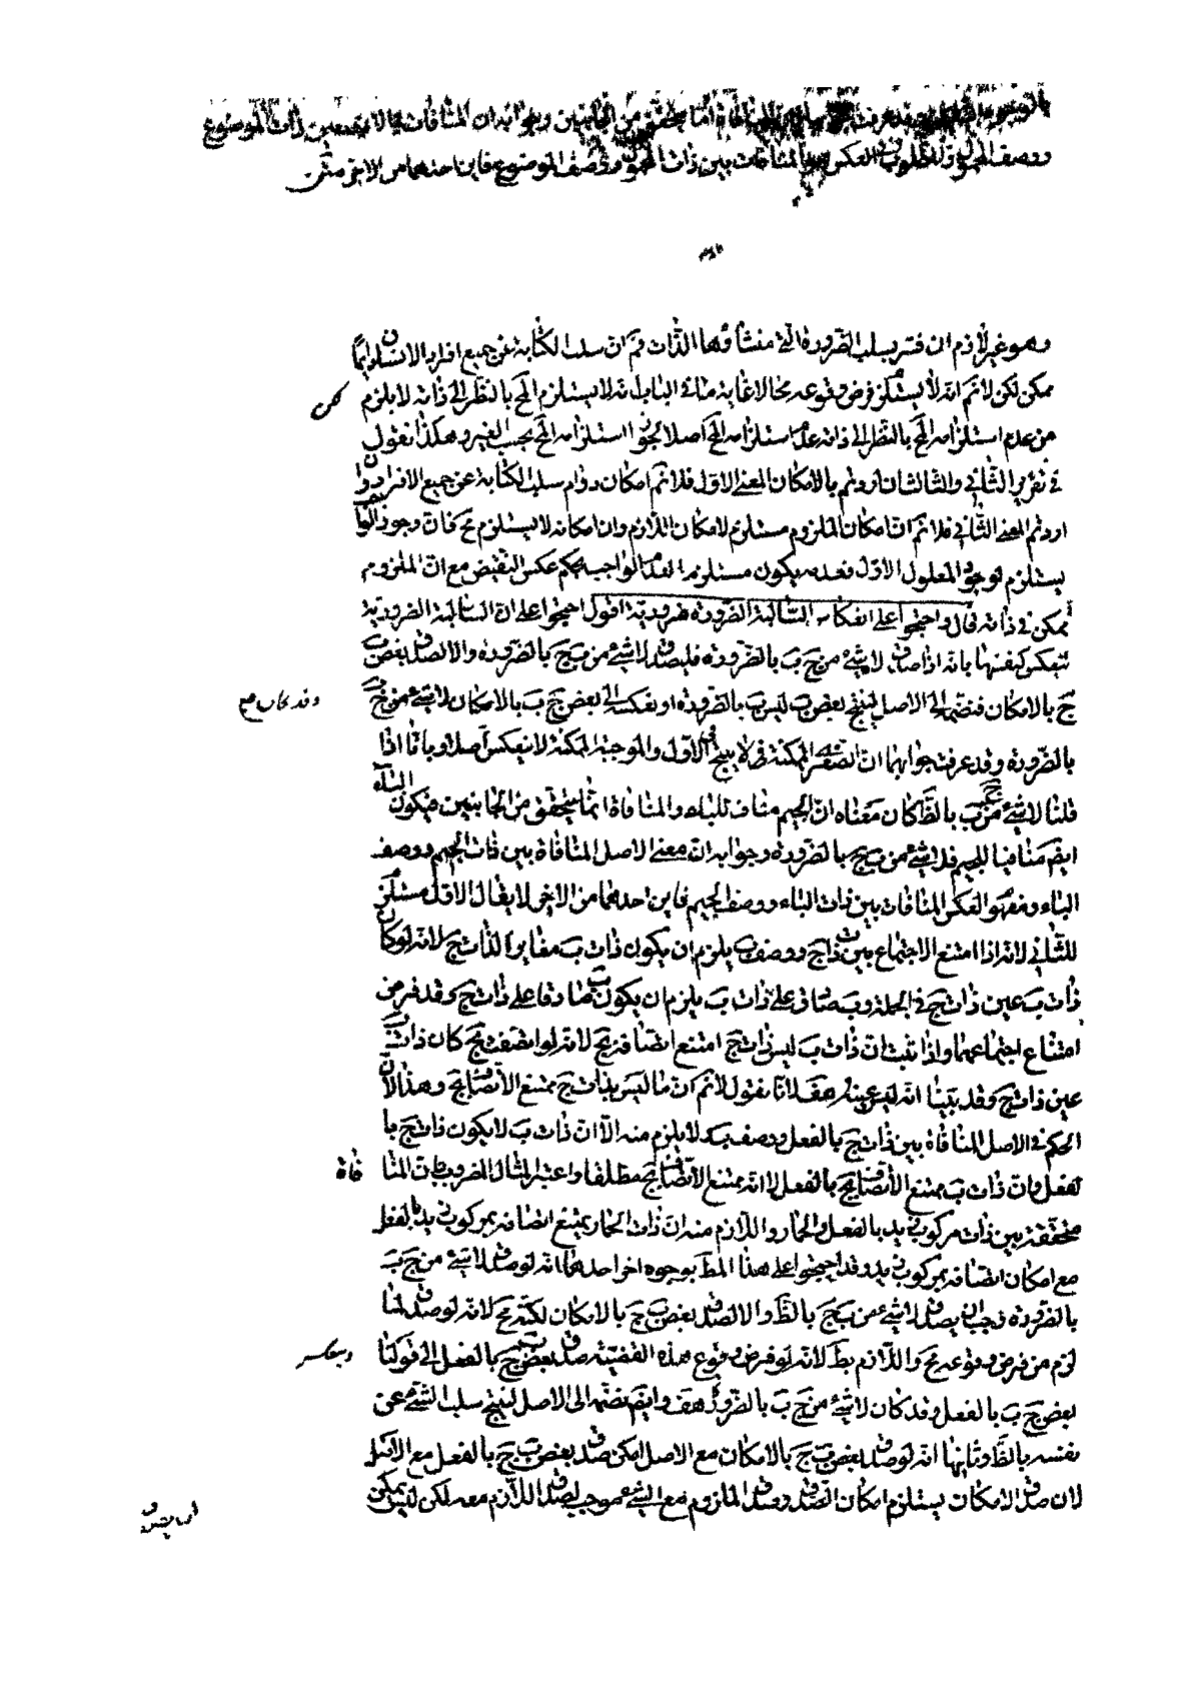 انما يتحقق من الجانبين وجوابه ان المنافات بين ذات الموضوع
ووصف المحمول والمطلوب في العكس هو المنافات بين ذات المحمول ووصف الموضوع فاين احدهما من الاخر منه
وهو غير لازم ان فسر بسلب الضرورة التي منشأوها الذات فح ان سلب الكتابة عن جميع افراد الانسان دايما
ممكن لكن لا نم انه لا يستلزم فرض وقوعه محالا غاية ما في الباب انه لا يستلزم المح بالنظر الى ذاته لا يلزم لكن
من عدم استلزامه المح بالنظر الى ذاته عدم استلزامه المح اصلا لجواز استلزامه المح بحسب الغير وهكذا نقول
في تقرير الثاني والثالث ان اردتم بالامكان المعنى الاول فلا نم امكان دوام سلب الكتابة عن جميع الافراد وان
اردتم المعنى الثاني فلا نم ان امكان الملزوم مستلزم لامكان اللازم وان امكانه لا يستلزم مح فان وجود الواجب
يستلزم لوجود المعلول الاول فعدمه يكون مستلزما لعدم الواجب بحكم عكس النقيض مع ان الملزوم
ممكن في ذاته قال واحتجوا على انعكاس السالبة الضرورة ضرورية اقول احتجوا على ان السالبة الضرورية
تنعكس كنفسها بانه اذا صدق لا شئ من ج ب بالضرورة فليصدق لا شئ من ب ج بالضرورة والا لصدق بعض ب
ج بالامكان فنضمه الى الاصل لينتج بعض ب ليس ب بالضرورة او نعكسه الى بعض ج ب بالامكان وقد كان لا شئ من ج ب
بالضرورة وقد عرفت جوابهما ان الصغرى الممكنة لا ينتج في الاول والموجبة الممكنة لا ينعكس اصلا وبانا اذا
قلنا لا شئ من ج ب بالضَ كان معناه ان الجيم مناف للباء والمنافاة انما يتحقق من الجانبين فيكون الباء
ايضَ منافيا للجيم فلا شئ من ب ج بالضرورة وجوابه ان معنى الاصل المنافاة بين ذات الجيم ووصف
الباء ومفهوم العكس المنافات بين ذات الباء ووصف الجيم فاين احدهما من الاخر لا يقال الاول مستلزم
للثاني لانه اذا امتنع الاجتماع بين ذات ج ووصف ب يلزم ان يكون ذات ب مغايرا لذات ج لانه لو كان
ذات ب عين ذات ج في الجملة وب صادق على ذات ب يلزم ان يكون ب صادقا على ذات ج وقد فرض
امتناع اجتماعهما واذا ثبت ان ذات ب ليس ذات ج امتنع اتصافه بج لانه لو اتصف بج كان ذات ب
عين ذات ج وقد بينا انه ليس عينه هف لانا نقول لا نم ان ما ليس بذات ج ممتنع الاتصاف بج وهذا لان
الحكم في الاصل المنافاة بين ذات ج بالفعل ووصف ب فلا يلزم منه الا ان ذات ب لا يكون ذات ج با
لفعل وان ذات ب ممتنع الاتصاف بج بالفعل لا انه ممتنع الاتصاف بج مطلقا واعتبر المثال المضروب فان المنافاة
متحققة بين ذات مركوب زيد بالفعل والحمار واللازم منه ان ذات الحمار يمتنع اتصافه بمركوب زيد بالفعل
مع امكان اتصافه بمركوب زيد وقد احتجوا على هذا المط بوجوه اخر احدها انه لو صدق لا شئ من ج ب
بالضرورة وجب ان يصدق لا شئ من ب ج بالضَ والا لصدق بعض ب ج بالامكان لكنه مح لانه لو صدق لما
لزم من فرض وقوعه مح واللازم بط لانه لو فرض وقوع هذه القضية صدق بعض ب ج بالفعل وينعكس الى قولنا
بعض ج ب بالفعل وقد كان لا شئ من ج ب بالضرورة هف وايضَ نضمه الى الاصل لينتج سلب الشئ عن
نفسه بالضَ وثانيها انه لو صدق بعض ب ج بالامكان مع الاصل امكن صدق بعض ب ج بالفعل مع الاصل
لان صدق الامكان يستلزم امكان الصدق وصدق الملزوم مع الشئ موجب لصدق اللازم معه لكن ليس يمكن